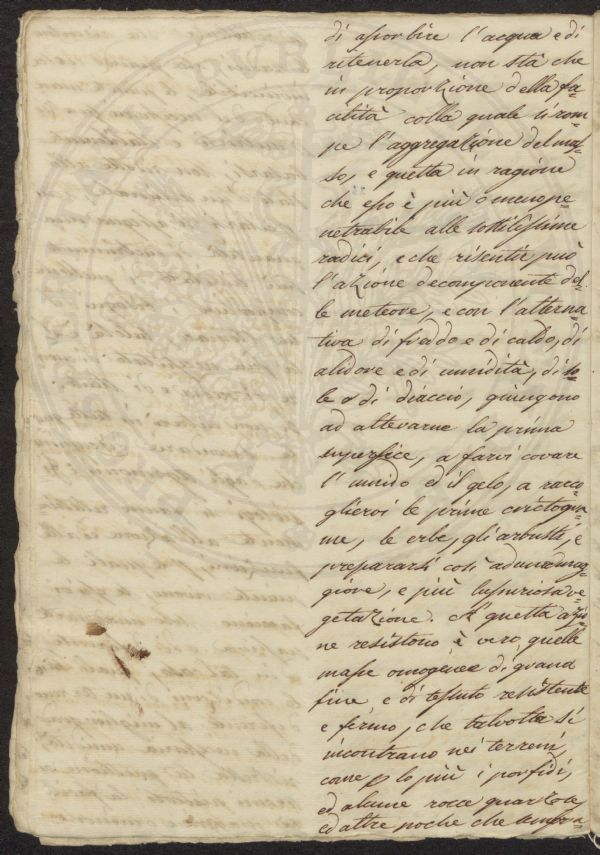 di assorbire l'acqua e di
ritenerla, non stà che
in proporzione della fa=
cilità colla quale si rom=
pe l'aggregazione del mas=
so, e questa in ragione
che esso è più o meno pe=
netrabile alle sottilissime
radici, e che risentir può
l'azione decomponente del=
le meteore, e con l'alterna=
tiva di freddo e di caldo, di
alidore e di umidità, di so=
le o di diaccio, giungono
ad alterarne la prima
superfice, a farvi covare
l'umido ed il gelo, a racco=
gliervi le prime crictoga=
me, le erbe, gli arbusti, e
prepararsi così ad una mag=
giore, e più lussuriosa ve=
getazione. A questa azio=
ne resistono è vero quelle
masse omogenee di grana
fine, e di tessuto resistente
e fermo, che talvolta si
incontrano nei terreni,
come p lo più i porfidi,
ed alcune rocce quarzose,
ed altre poche che